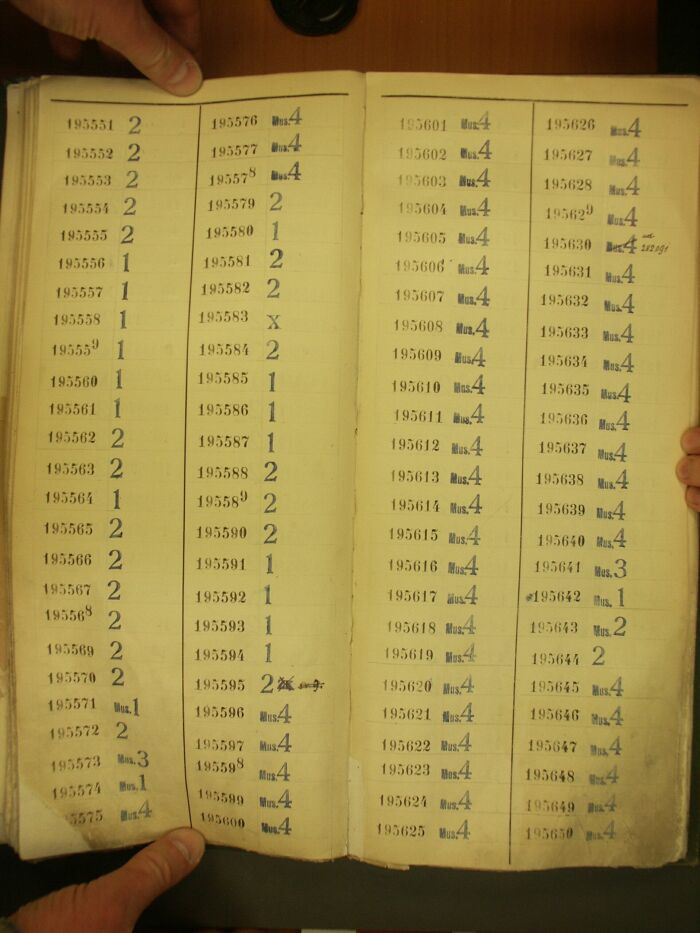 195551 2
195552 2
195553 2
195554 2
195555 2
195556 1
195557 1
195558 1
195559 1
195560 1
195561 1
195562 2
195563 2
195564 1
195565 2
195566 2
195567 2
195568 2
195569 2
195570 2
195571 Mus.1
195572 2
195573 Mus.3
195574 Mus.1
5575 Mus.4
195576 Mus.4
195577 Mus.4
195578 Mus.4
195579 2
195580 1
195581 2
195582 2
195583 x
195584 2
195585 1
195586 1
195587 1
195588 2
195589 2
195590 2
195591 1
195592 1
195593 1
195594 1
195595 2
195596 Mus.4
195597 Mus.4
195598 Mus.4
195599 Mus.4
195600 Mus.4
195601 Mus.4
195602 Mus.4
195603 Mus.4
195604 Mus.4
195605 Mus.4
195606 Mus.4
195607 Mus.4
195608 Mus.4
195609 Mus.4
195610 Mus.4
195611 Mus.4
195612 Mus.4
195613 Mus.4
195614 Mus.4
195615 Mus.4
195616 Mus.4
195617 Mus.4
195618 Mus.4
195619 Mus.4
195620 Mus.4
195621 Mus.4
195622 Mus.4
195623 Mus.4
195624 Mus.4
195625 Mus.4
195626 Mus.4
195627 Mus.4
195628 Mus.4
195629 Mus.4
195630 Mus.4
195631 Mus.4
195632 Mus.4
195633 Mus.4
195634 Mus.4
195635 Mus.4
195636 Mus.4
195637 Mus.4
195638 Mus.4
195639 Mus.4
195640 Mus.4
195641 Mus.3
195642 Mus.1
195643 Mus.2
195644 2
195645 Mus.4
195646 Mus.4
195647 Mus.4
195648 Mus.4
195649 Mus.4
195650 Mus.4